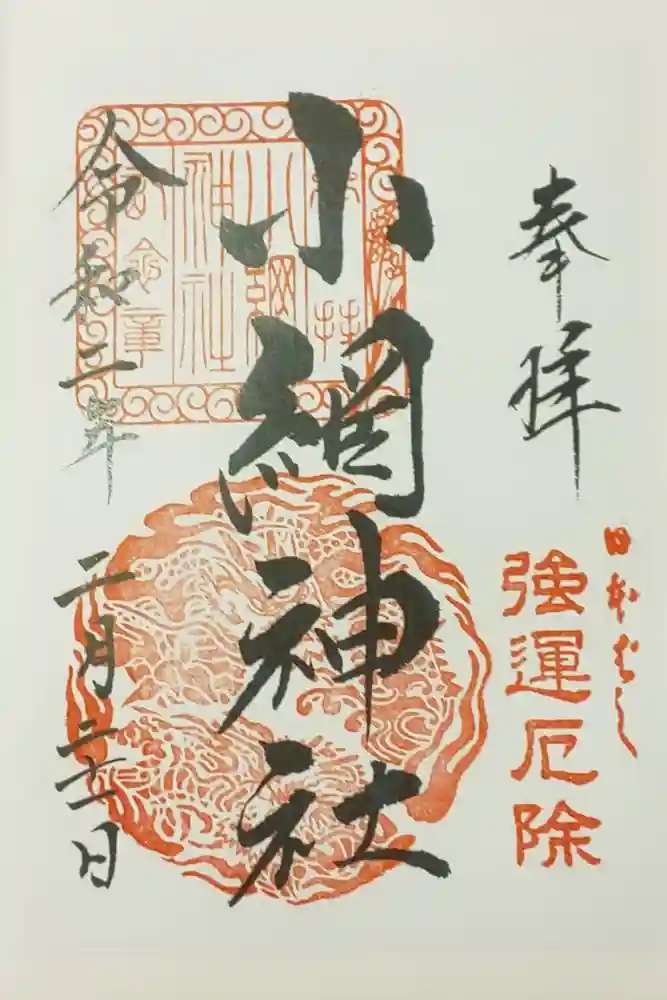 奉拝
日本ばし
強運厄除
小網神社
令和二年
二月二十一日
小網
神社
念章